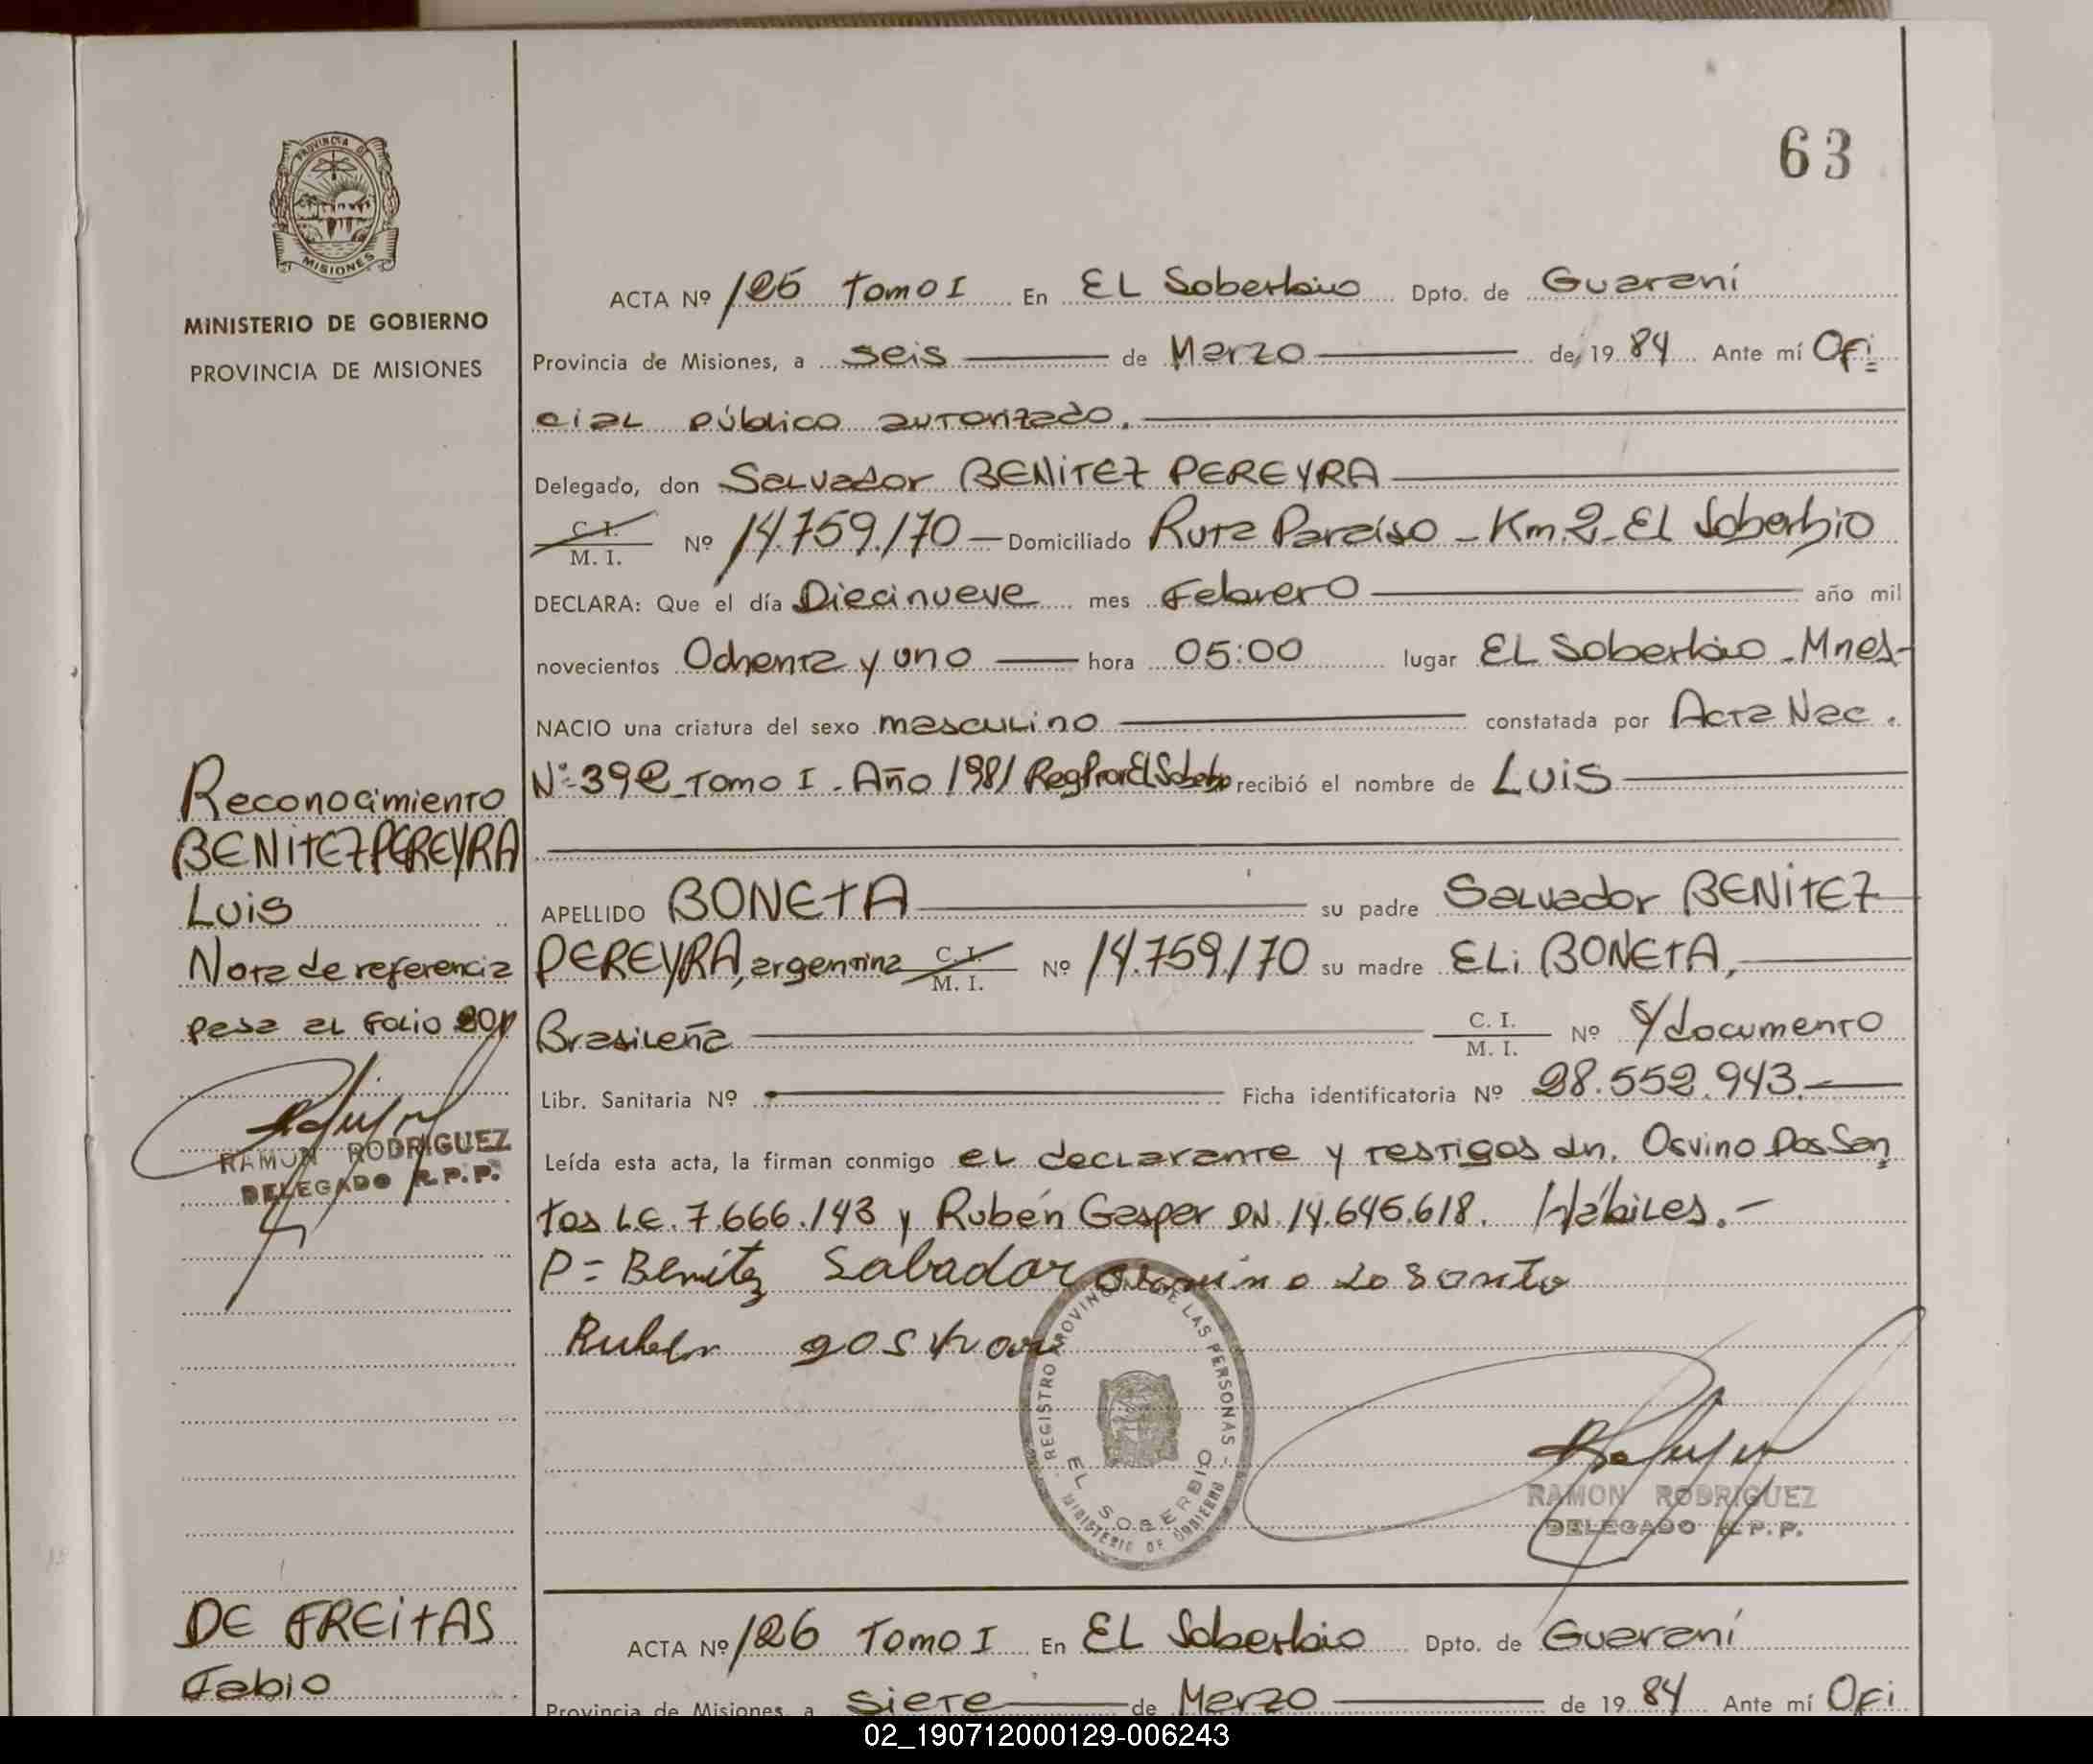 63
PROVINCIA DE
MISIONES
MINISTERIO DE GOBIERNO
PROVINCIA DE MISIONES
ACTA Nº 125 Tomo I En EL Soberbio Dpto. de Guaraní
Provincia de Misiones, a seis de Marzo de 1984 Ante mí Ofi=
cial público autorizado.
Delegado, don Salvador BENITEZ PEREYRA
C. I.
M. I. Nº 14.759.170 — Domiciliado Ruta Paraíso - Km.2- El Soberbio
DECLARA: Que el día Diecinueve mes Febrero año mil
novecientos Ochenta y uno hora 05:00 lugar EL Soberbio - Mnes-
NACIO una criatura del sexo masculino constatada por Acta Nac.
Nº 392 Tomo I - Año 1981 recibió el nombre de Luis
APELLIDO BONETA su padre Salvador BENITEZ
PEREYRA, argentina C. I. M. I. Nº 14.759.170 su madre ELi BONETA,
Brasileña C. I. M. I. Nº s/documento
Libr. Sanitaria Nº Ficha identificatoria Nº 28.552.943.-
Leída esta acta, la firman conmigo el declarante y testigos dn. Osvino Dos San
tos L.E. 7.666.143 y Rubén Gasper DN. 14.645.618. Hábiles.-
P= Benítez Sabador
Ruben
REGISTRO PROVINCIAL DE LAS PERSONAS
EL SOBERBIO
MINISTERIO DE GOBIERNO
RAMON RODRIGUEZ
DELEGADO R.P.P.
Reconocimiento
BENITEZ PEREYRA
Luis
Nota de referencia
pasa al Folio
RAMON RODRIGUEZ
DELEGADO R.P.P.
DE FREITAS
Fabio
ACTA Nº 126 Tomo I En EL Soberbio Dpto. de Guaraní
Provincia de Misiones, a siete de Marzo de 1984 Ante mí Ofi
02_190712000129-006243